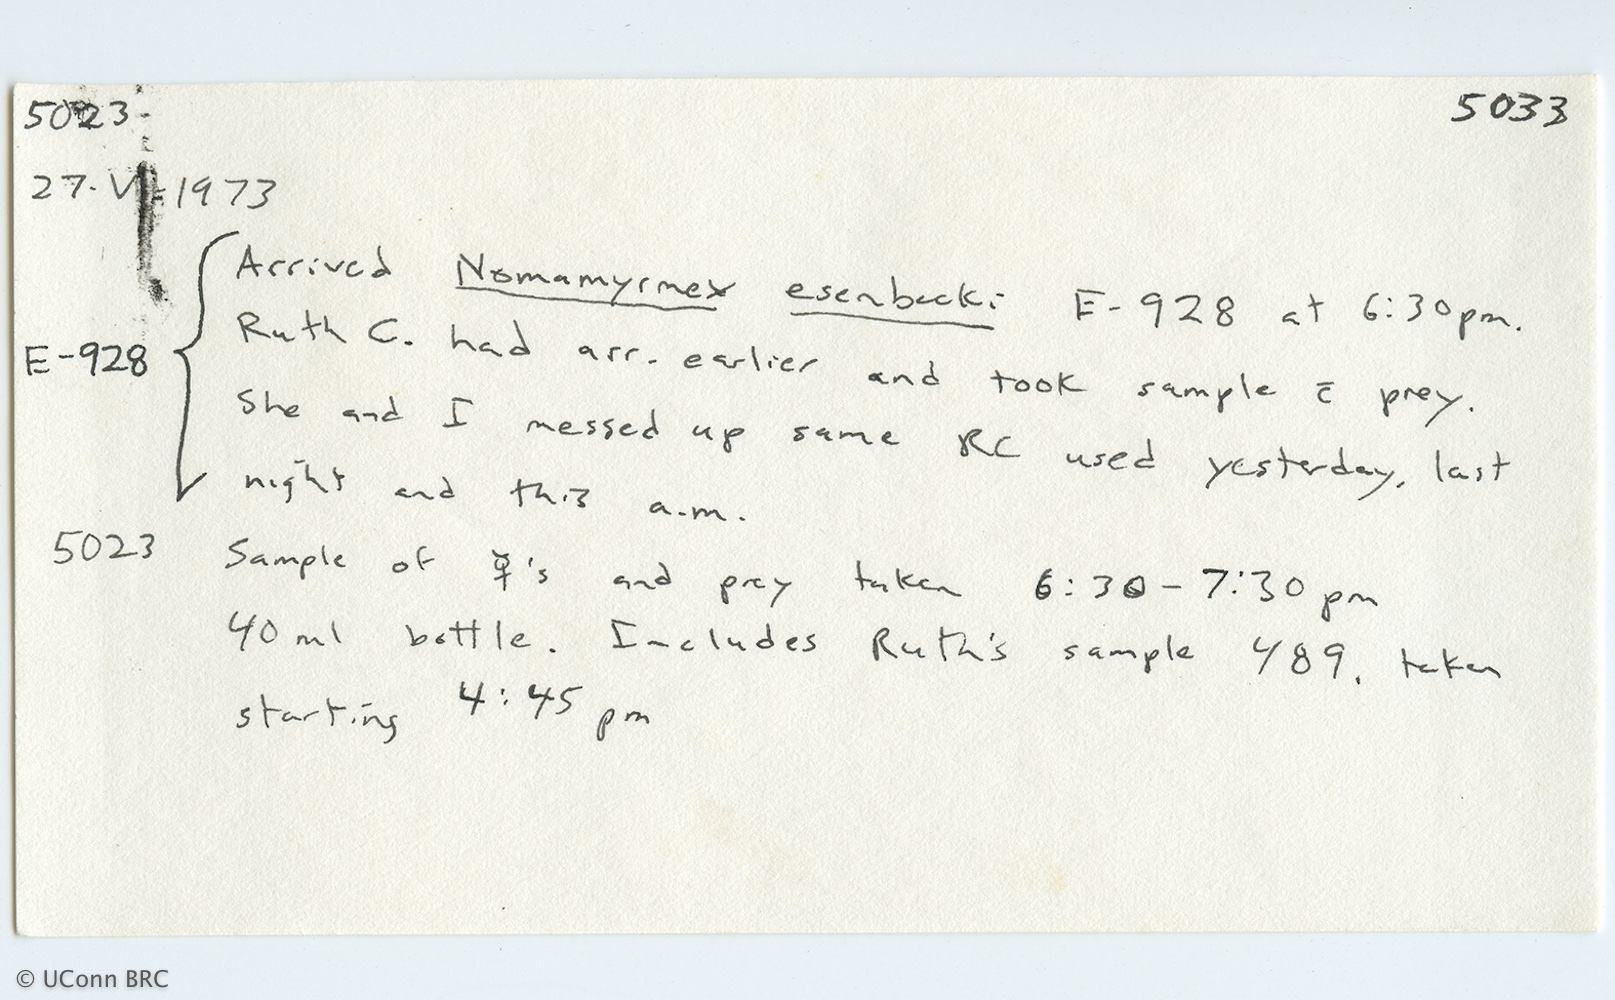 5023- 5033
27·VI-1973
Arrived Nomamyrmex esenbecki E-928 at 6:30pm.
E-928 Ruth C. had arr. earlier and took sample c̄ prey.
She and I messed up same RC used yesterday, last
night and this a.m.
5023 Sample of ☿'s and prey taken 6:30-7:30 pm
40 ml bottle. Includes Ruth's sample 489, taken
starting 4:45 pm
© UConn BRC